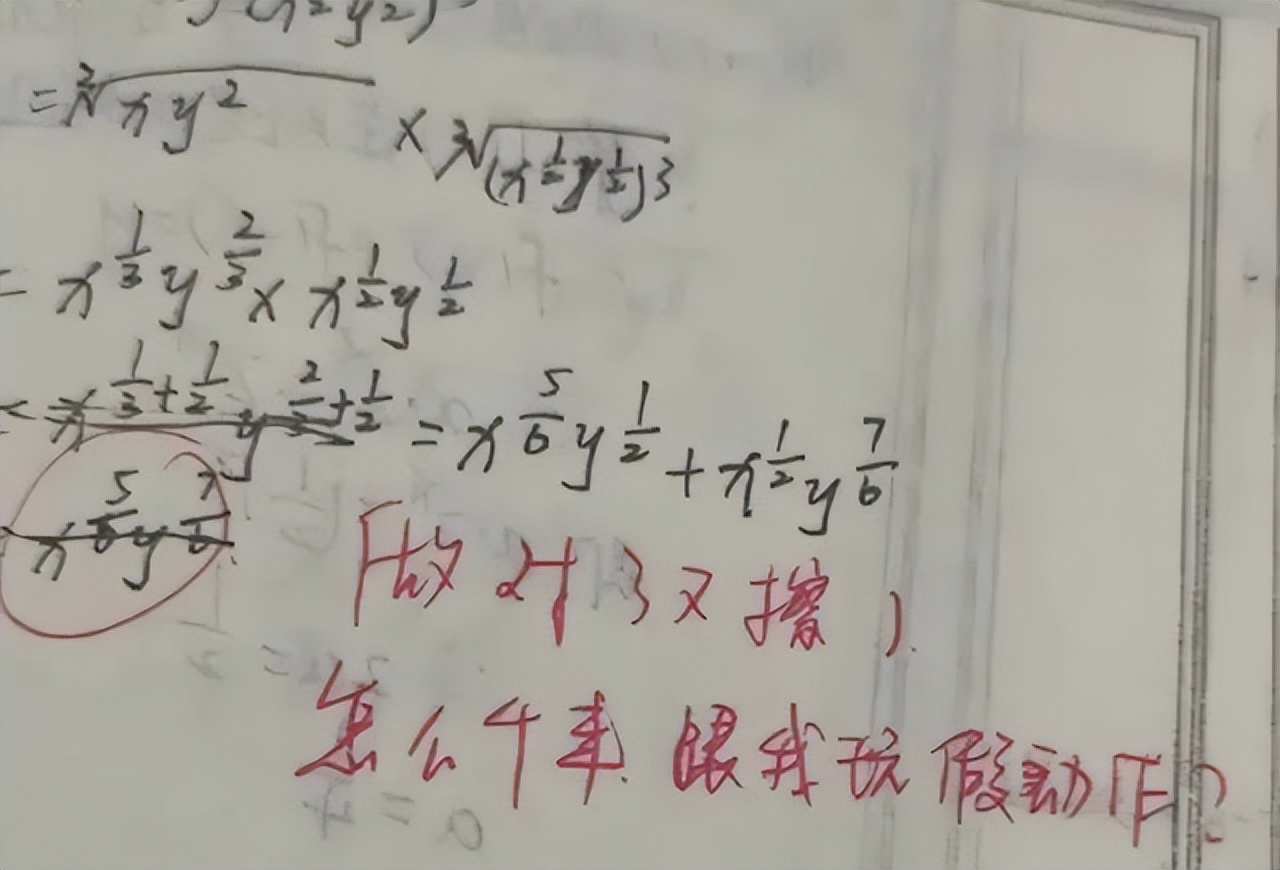 = ∛(xy²) × ∛((x^(1/2)y^(1/2))³)
= x^(1/3) y^(2/3) × x^(1/2) y^(1/2)
= x^(1/3+1/2) y^(2/3+1/2) = x^(5/6) y^(1/2) + x^(1/2) y^(7/6)
x^(5/6) y^(7/6)
做对了又擦,
怎么个事 跟我玩假动作?